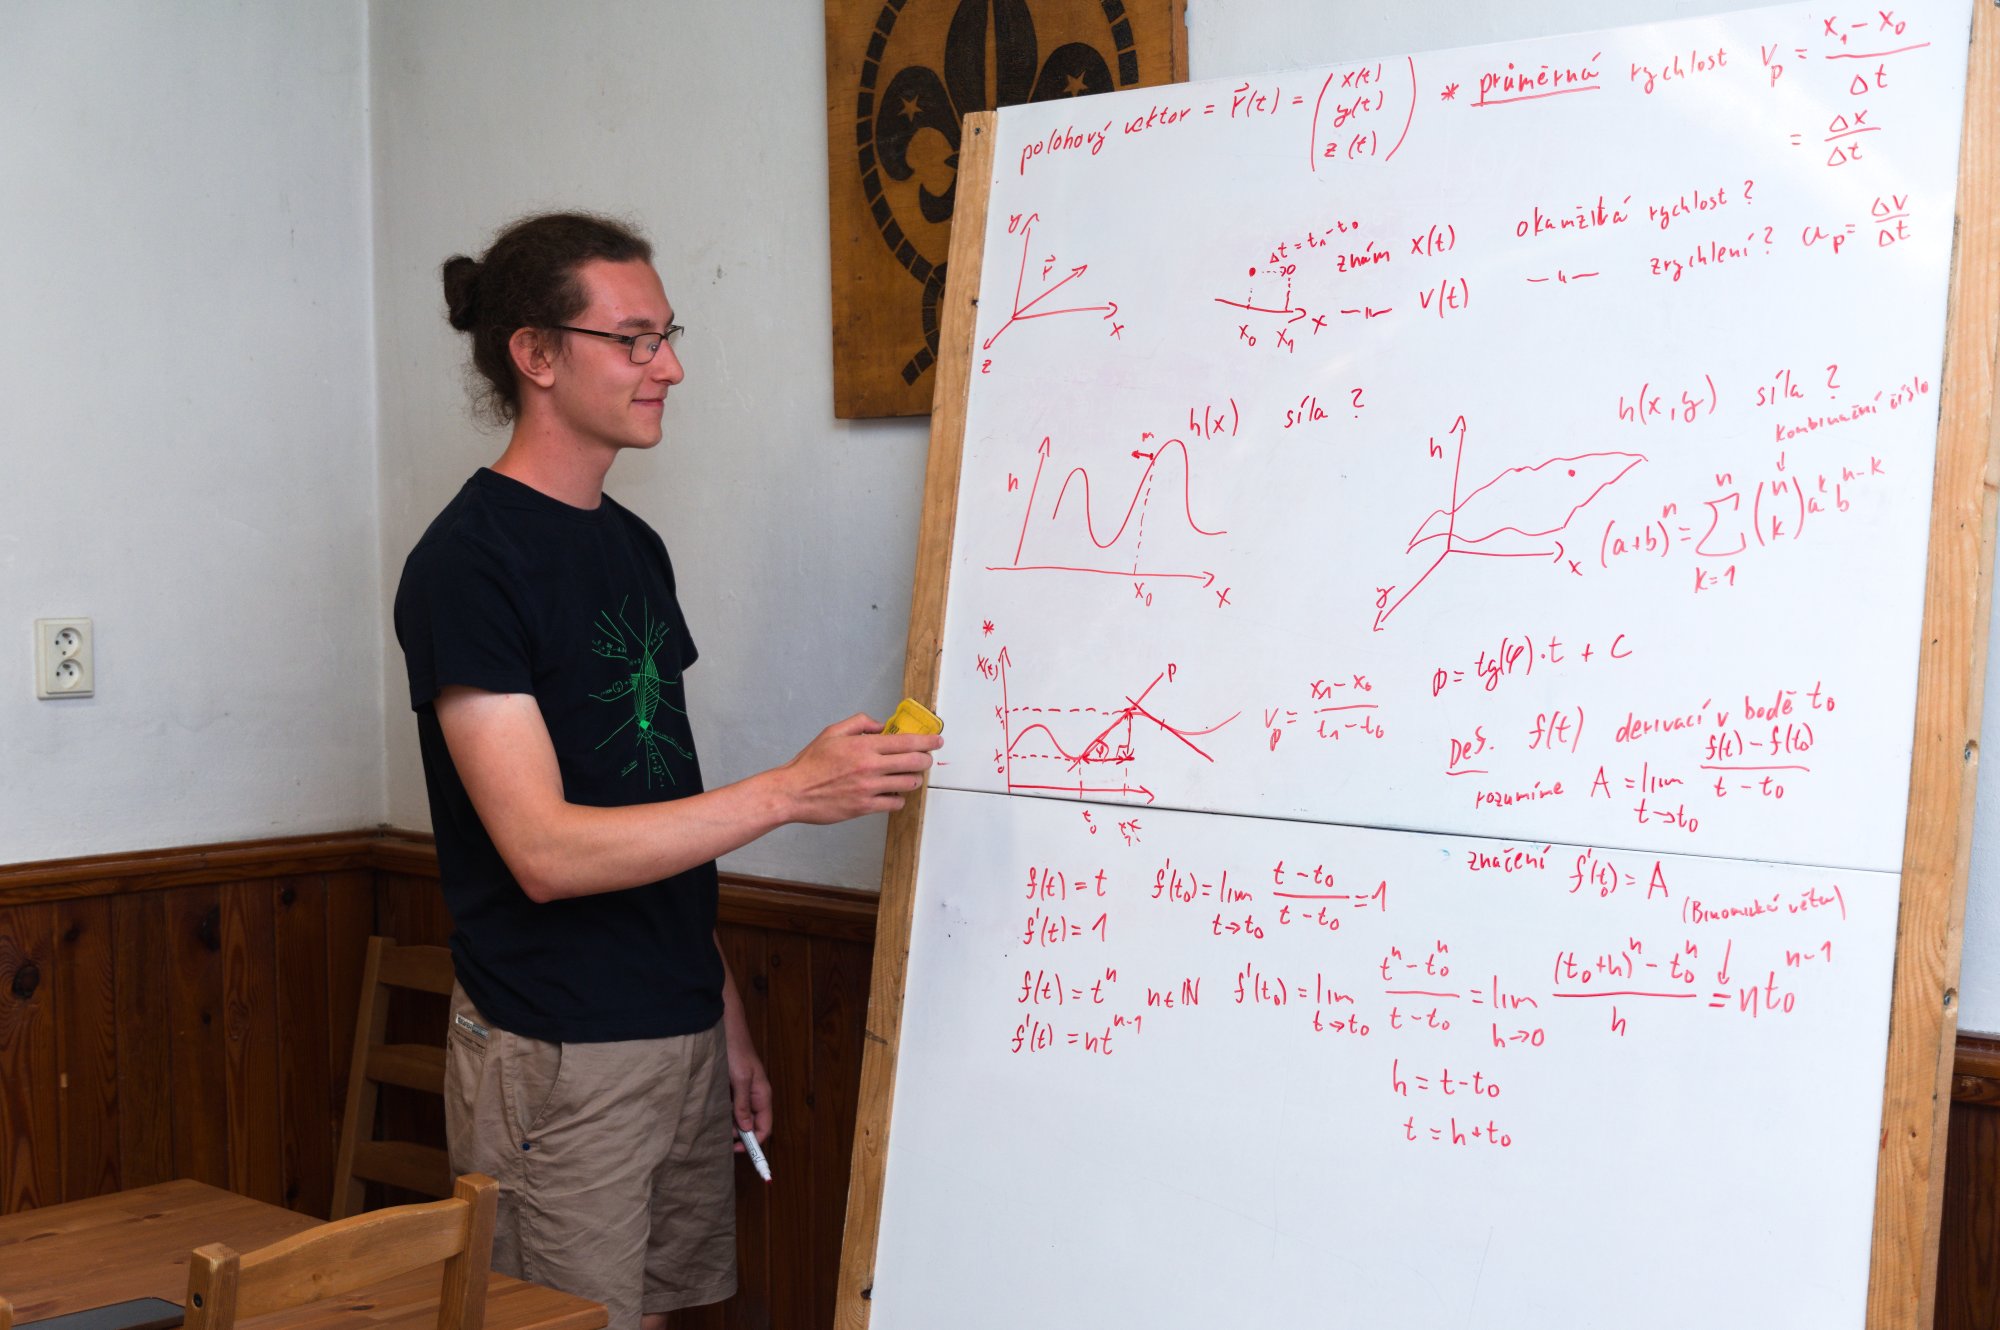 polohový vektor = r⃗(t) = (x(t) y(t) z(t))
* průměrná rychlost v_p = (x₁ - x₀)/Δt
= Δx/Δt
y
r⃗
x
z
Δt = t₁ - t₀
x₀ x₁ x
znám x(t) okamžitá rychlost ?
—〃— v(t) —〃— zrychlení ? a_p = Δv/Δt
h(x) síla ?
m
h
x₀ x
h(x,y) síla ?
h
x
y
kombinační číslo
(a+b)^n = ∑_{k=1}^{n} (n k) a^k b^{n-k}
*
x(t)
x₁
x₀
p
φ
t₀
v_p = (x₁ - x₀)/(t₁ - t₀)
p = tg(φ)·t + c
Def. f(t) derivací v bodě t₀
rozumíme A = lim_{t→t₀} (f(t) - f(t₀))/(t - t₀)
značení f'(t₀) = A
f(t) = t f'(t₀) = lim_{t→t₀} (t - t₀)/(t - t₀) = 1
f'(t) = 1
(Binomická věta)
f(t) = t^n n∈ℕ f'(t₀) = lim_{t→t₀} (t^n - t₀^n)/(t - t₀) = lim_{h→0} ((t₀+h)^n - t₀^n)/h = nt₀^{n-1}
f'(t) = nt^{n-1}
h = t - t₀
t = h + t₀